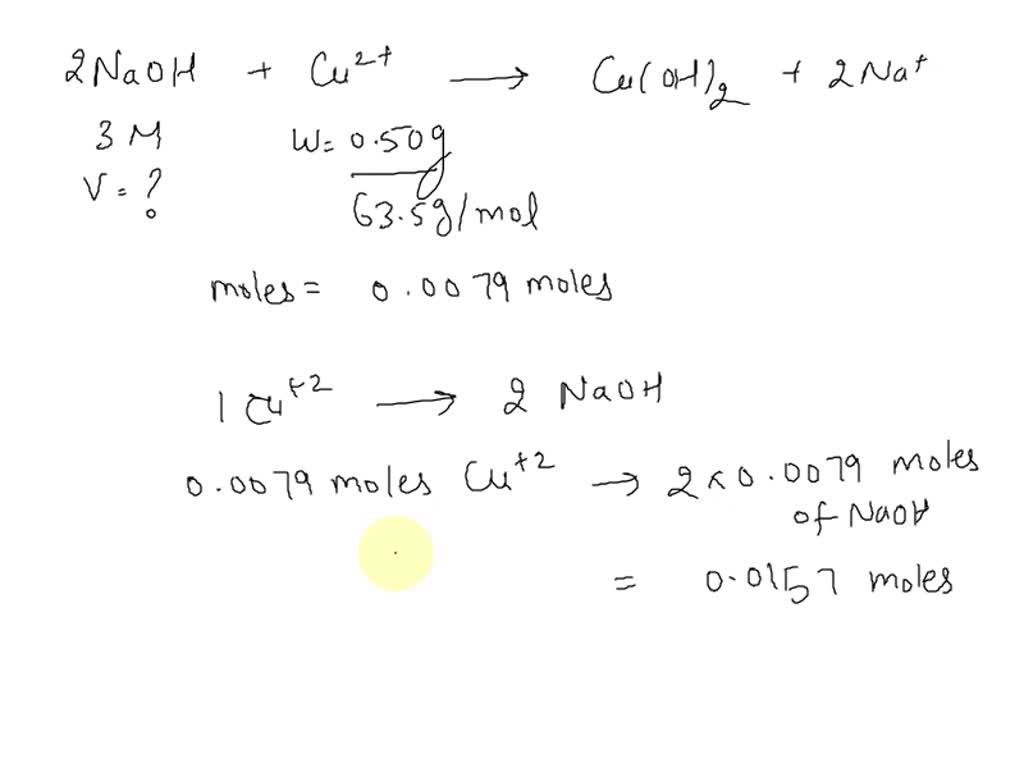 2NaOH + Cu²⁺ ⟶ Cu(OH)₂ + 2Na⁺
3 M W = 0.50g
V = ? 63.5g/mol
moles = 0.0079 moles
1 Cu⁺² ⟶ 2 NaOH
0.0079 moles Cu⁺² → 2 × 0.0079 moles
of NaOH
= 0.0157 moles